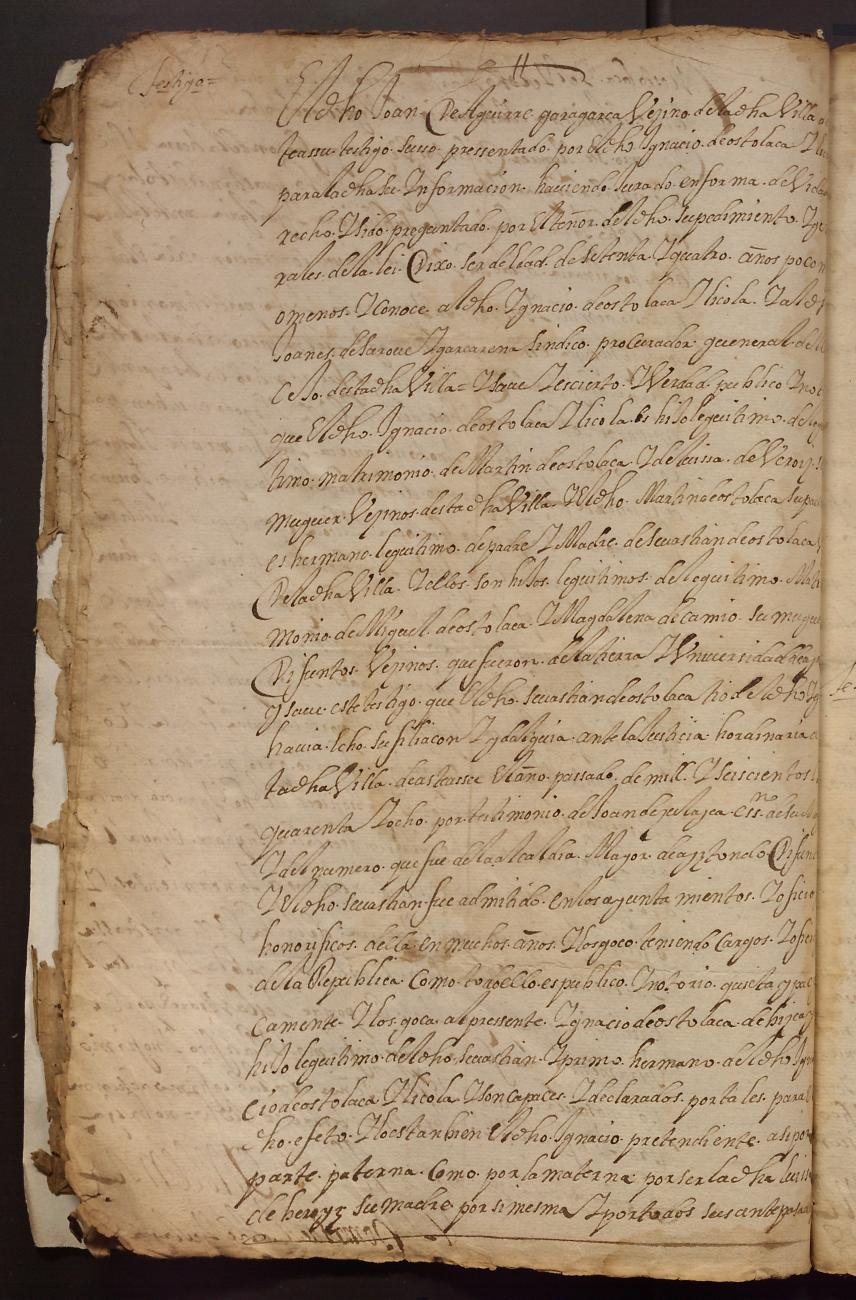 testigo =
El dho Joan De Aguirre garagarça Veҫino de la dha Villa
teassu testigo suso pressentado por El dho Ignacio de ostolaça Ili
para la dha su Informacion haviendo Jurado en forma de Vida
recho Y sido preguntado por El tenor de el dho su pedimiento Y ge
rales de la lei Dixo ser de Edad de Setenta Y quatro años poco m
o menos Y Conoce a el dho Ignacio de ostolaca Ylicola Y a el d
Joanes de Yarca Ygarcarena sindico procurador queneral de
Ce Jo desta dha Villa = Y save Y es cierto Y Verdad publico Y no
que El dho Ignacio de ostolaca Ylicola es hiJo lequitimo de leq
timo matrimonio de Martin de ostolaca Y de luissa de Veroiz s
muguer Veҫinos desta dha Villa Y El dho Martin de ostolaca su pa
es hermano lequitimo de padre Y Madre de sevastian de ostolaca
De la dha Villa Y ellos son hiJos lequitimos de lequitimo Ma
monio de Miguel de ostolaca Y Magdalena de camio su mugu
Difuntos Veҫinos que fueron de la tierra Y Vniversidad de
Y save este testigo que El dho sevastian de ostolaca tio de el dho Ig
havia Echo su filiacon Y ydalguia ante la Justicia hordinaria
ta dha Villa de asteassu El año passado de mill Y seiscientos
quarenta Y ocho por testimonio de Joan de ss.no de su Ma
Y del numero que fue de la alcaldia Mayor de ayztondo Difun
Y El dho sevastian fue admitido en los ayuntamientos Y oficio
honorificos de lla en muchos años Y los goço teniendo Cargos Y ofici
de la Republica Como todo ello es publico Y notorio quieta y paci
camente Y los goça al pressente Ygnacio de ostolaca
hiJo lequitimo de el dho sevastian Y primo hermano de el dho Ign
cio de ostolaca Ylicola Y son capaces Y declarados por tales para el
dho efeto Y lo es tanbien El dho Ignacio pretendiente asi por
parte paterna Como por la materna por ser la dha luissa
de heroyz su madre por si mesma Y por todos sus antepasad